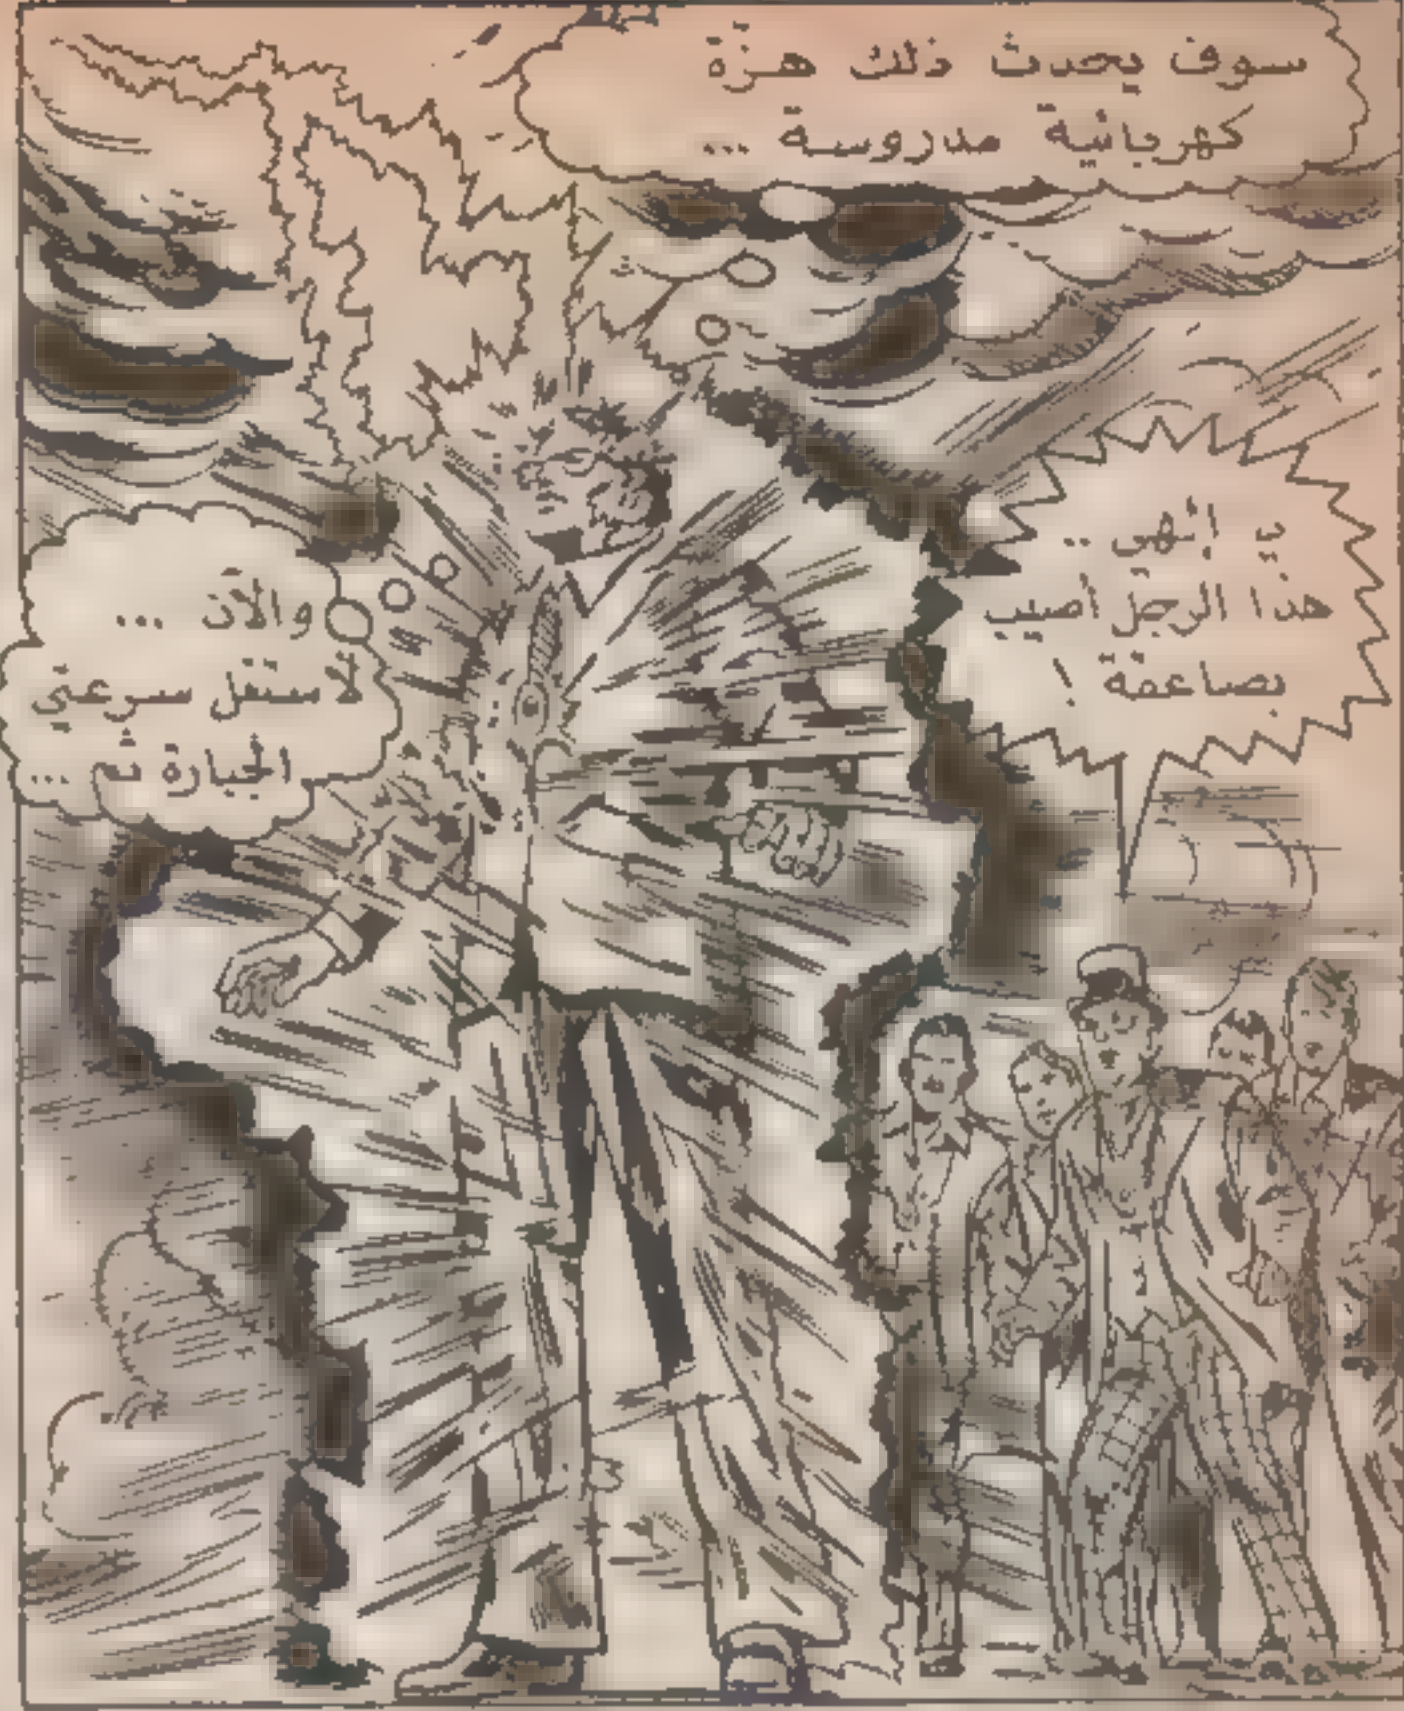 سوف يحدث ذلك هزّة
كهربائية مدروسة ...
يا إلهي ..
هذا الرجل أصيب
بصاعقة !
والآن ...
لأستقل سرعتي
الجبارة ...